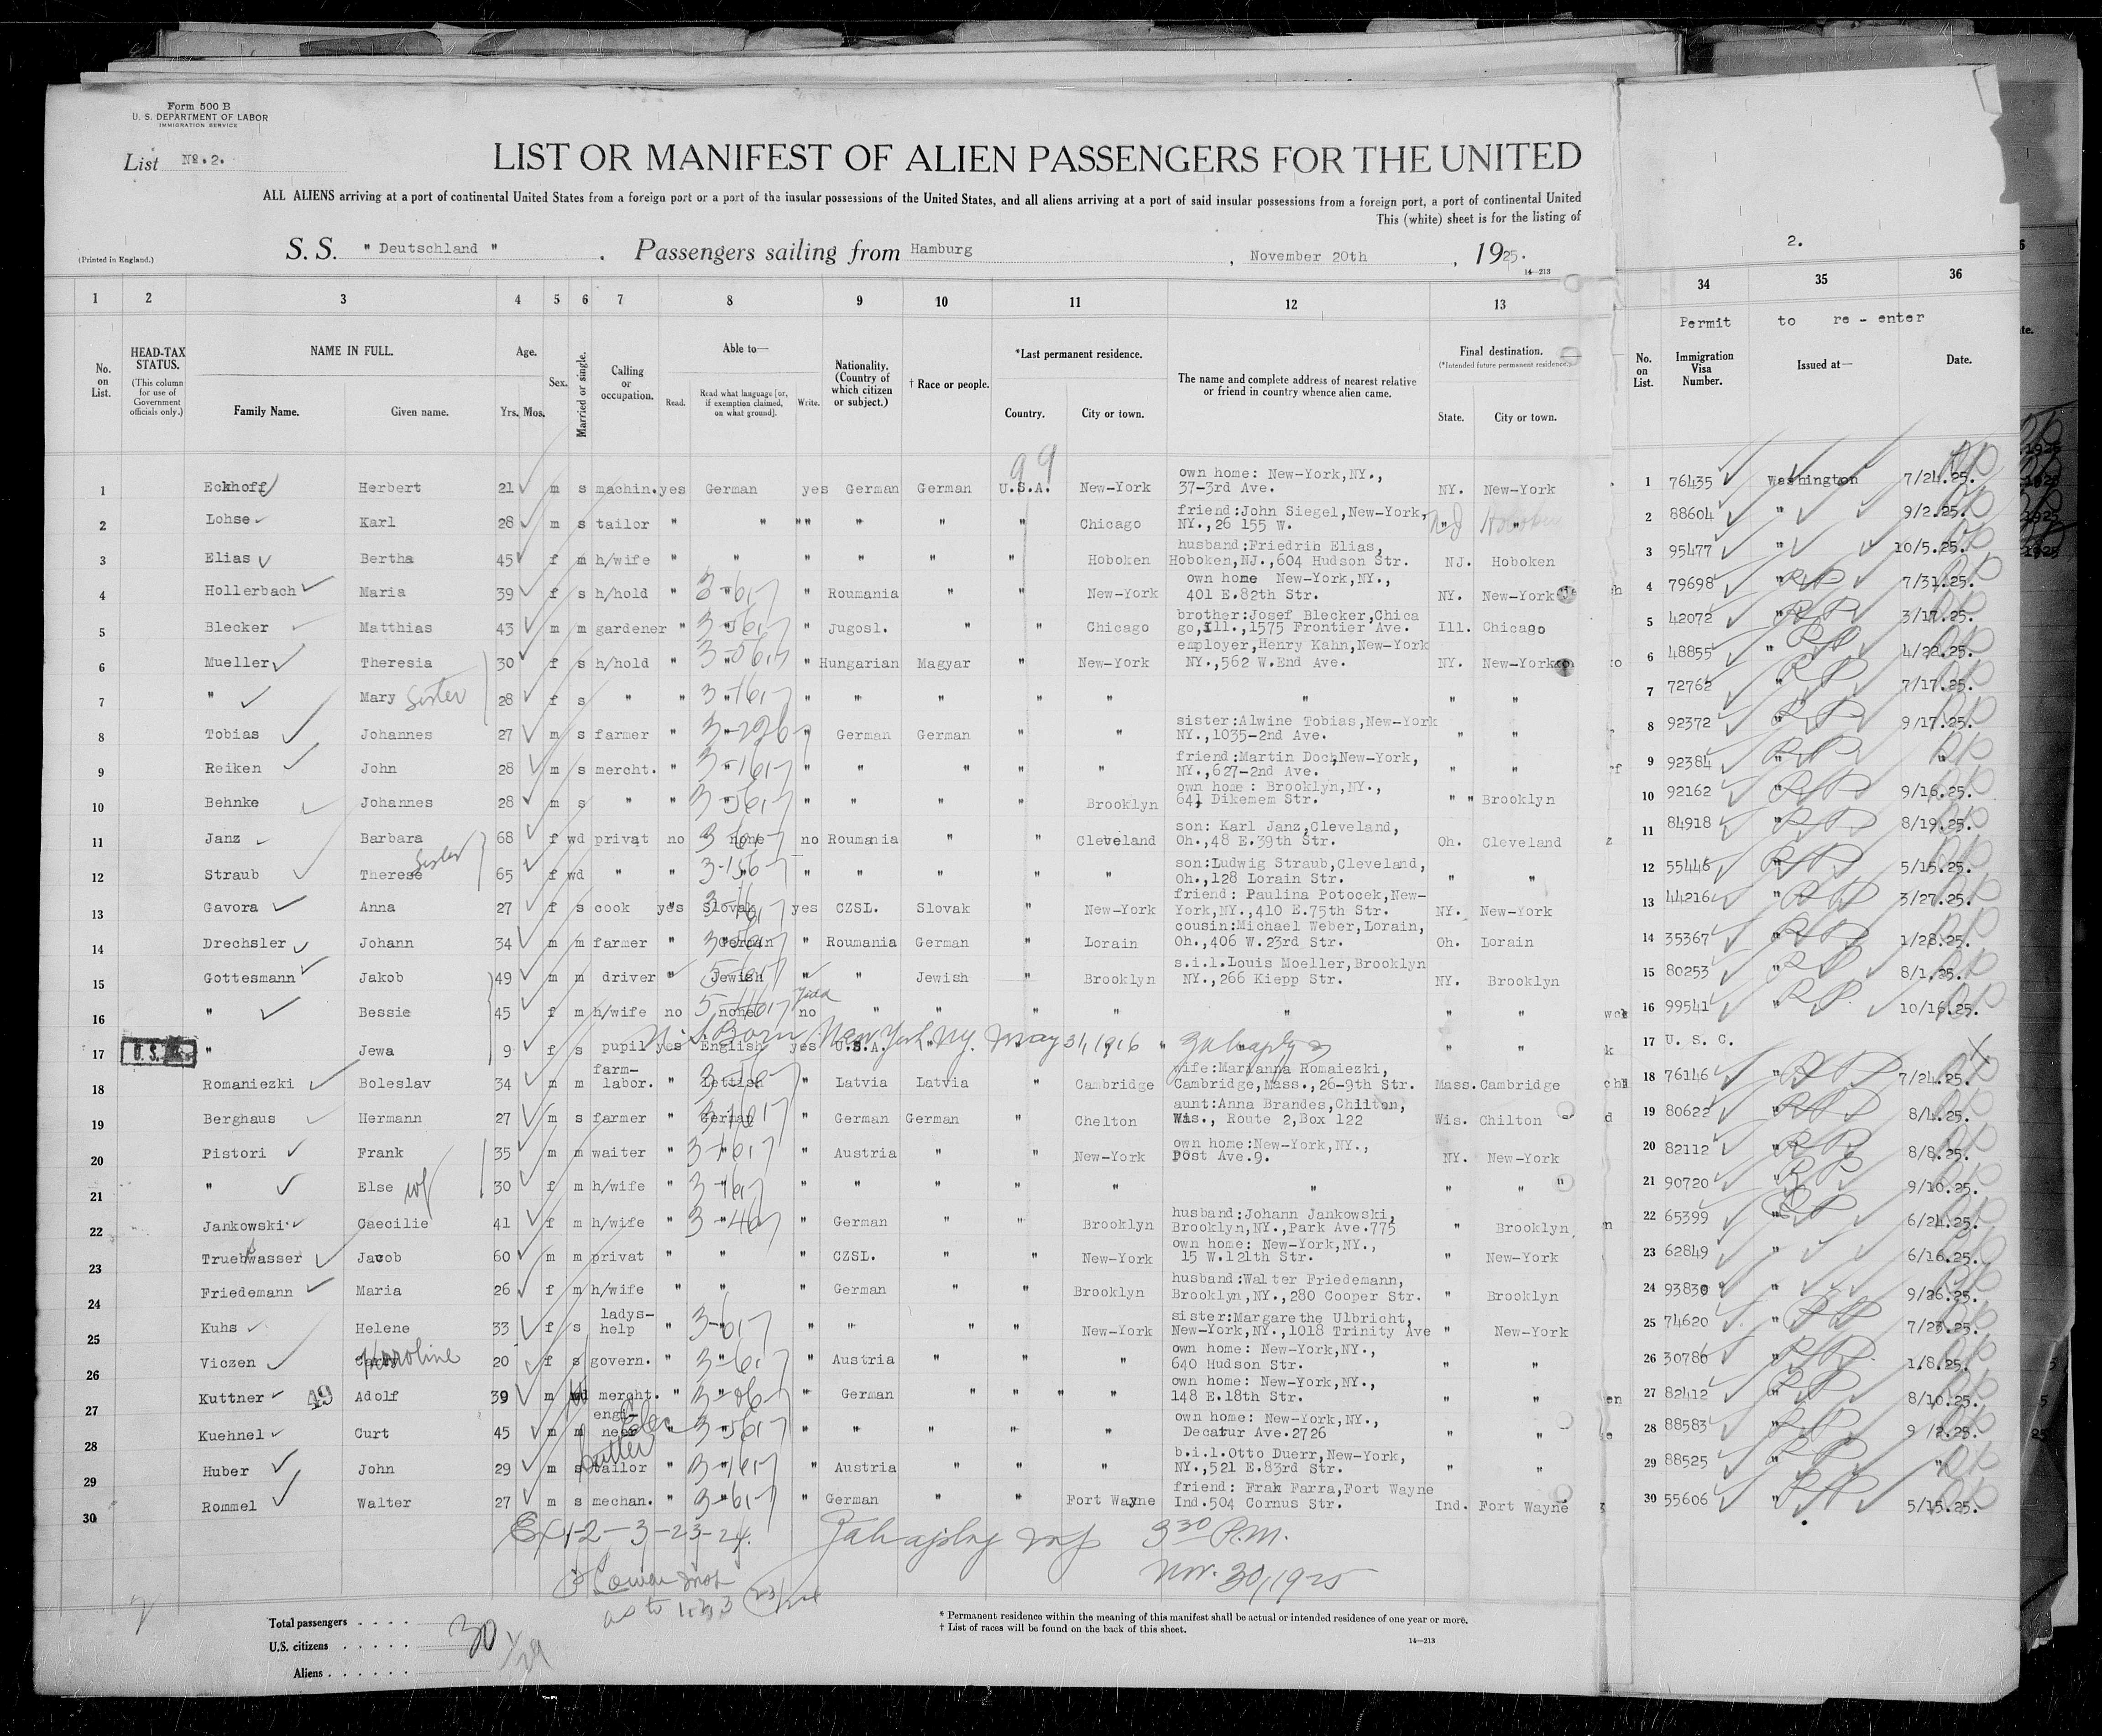 Form 500 B
U. S. DEPARTMENT OF LABOR
IMMIGRATION SERVICE
List No. 2.
LIST OR MANIFEST OF ALIEN PASSENGERS FOR THE UNITED
ALL ALIENS arriving at a port of continental United States from a foreign port or a port of the insular possessions of the United States, and all aliens arriving at a port of said insular possessions from a foreign port, a port of continental United
This (white) sheet is for the listing of
(Printed in England.)
S. S. " Deutschland " . Passengers sailing from Hamburg , November 20th , 1925.
14—213
2.
1 2 3 4 5 6 7 8 9 10 11 12 13 34 35 36
Permit to re - enter
No. on List.
HEAD-TAX STATUS. (This column for use of Government officials only.)
NAME IN FULL. Family Name. Given name.
Age. Yrs. Mos.
Sex.
Married or single.
Calling or occupation.
Able to— Read. Read what language [or, if exemption claimed, on what ground]. Write.
Nationality. (Country of which citizen or subject.)
† Race or people.
*Last permanent residence. Country. City or town.
The name and complete address of nearest relative or friend in country whence alien came.
Final destination. (*Intended future permanent residence.) State. City or town.
No. on List. Immigration Visa Number. Issued at— Date.
99
1 Eckhoff Herbert 21 m s machin. yes German yes German German U.S.A. New-York own home: New-York,NY., 37-3rd Ave. NY. New-York 1 76435 Washington 7/24.25.
2 Lohse Karl 28 m s tailor " " " " " " Chicago friend:John Siegel,New-York, NY.,26 155 W. " " NJ Hoboken 2 88604 " 9/2.25.
3 Elias Bertha 45 f m h/wife " " " " " " Hoboken husband:Friedrih Elias, Hoboken,NJ.,604 Hudson Str. NJ. Hoboken 3 95477 " 10/5.25.
4 Hollerbach Maria 39 f s h/hold " " " Roumania " " New-York own home New-York,NY., 401 E.82th Str. NY. New-York 4 79698 " 7/31.25.
5 Blecker Matthias 43 m m gardener " " " Jugosl. " " Chicago brother:Josef Blecker,Chica go,Ill.,1575 Frontier Ave. Ill. Chicago 5 42072 " 3/17.25.
6 Mueller Theresia 30 f s h/hold " " " Hungarian Magyar " New-York employer,Henry Kahn,New-York NY.,562 W.End Ave. NY. New-York 6 48855 " 4/22.25.
7 " Mary Sister 28 f s " " " " " " " " " " " 7 72762 " 7/17.25.
8 Tobias Johannes 27 m s farmer " " " German German " " sister:Alwine Tobias,New-York NY.,1035-2nd Ave. " " 8 92372 " 9/17.25.
9 Reiken John 28 m s mercht. " " " " " " " friend:Martin Doch,New-York, NY.,627-2nd Ave. " " 9 92384 " "
10 Behnke Johannes 28 m s " " " " " " " Brooklyn own home : Brooklyn,NY., 641 Dikemem Str. " " Brooklyn 10 92162 " 9/16.25.
11 Janz Barbara 68 f wd privat no none no Roumania " " Cleveland son: Karl Janz,Cleveland, Oh.,48 E.39th Str. Oh. Cleveland 11 84918 " 8/19.25.
12 Straub Therese Sister 65 f wd " " " " " " " " son:Ludwig Straub,Cleveland, Oh.,128 Lorain Str. " " 12 55446 " 5/15.25.
13 Gavora Anna 27 f s cook yes Slovak yes CZSL. Slovak " New-York friend: Paulina Potocek,New- York,NY.,410 E.75th Str. NY. New-York 13 44216 " 3/27.25.
14 Drechsler Johann 34 m m farmer " German " Roumania German " Lorain cousin:Michael Weber,Lorain, Oh.,406 W.23rd Str. Oh. Lorain 14 35367 " 1/28.25.
15 Gottesmann Jakob 49 m m driver " Jewish " " Jewish " Brooklyn s.i.l.Louis Moeller,Brooklyn NY.,266 Kiepp Str. NY. Brooklyn 15 80253 " 8/1.25.
16 " Bessie 45 f m h/wife no none no " " " " " " " 16 99541 " 10/16.25.
17 U. S. " Jewa 9 f s pupil yes English yes U.S.A. " " " " " " Born New York NY. May 31, 1916 17 U. S. C.
18 Romaniezki Boleslav 34 m m farm-labor. " Lettish " Latvia Latvia " Cambridge wife:Marianna Romaiezki, Cambridge,Mass.,26-9th Str. Mass. Cambridge 18 76146 " 7/24.25.
19 Berghaus Hermann 27 m s farmer " German " German German " Chelton aunt:Anna Brandes,Chilton, Wis., Route 2,Box 122 Wis. Chilton 19 80622 " 8/4.25.
20 Pistori Frank 35 m m waiter " " " Austria " " New-York own home:New-York,NY., Post Ave.9. NY. New-York 20 82112 " 8/8.25.
21 " Else wf 30 f m h/wife " " " " " " " " " " 21 90720 " 9/10.25.
22 Jankowski Caecilie 41 f m h/wife " " " German " " Brooklyn husband:Johann Jankowski, Brooklyn,NY.,Park Ave.775 " Brooklyn 22 65399 " 6/24.25.
23 Truebwasser Jacob 60 m m privat " " " CZSL. " " New-York own home: New-York,NY., 15 W.121th Str. " New-York 23 62849 " 6/16.25.
24 Friedemann Maria 26 f m h/wife " " " German " " Brooklyn husband:Walter Friedemann, Brooklyn,NY.,280 Cooper Str. " Brooklyn 24 93830 " 9/26.25.
25 Kuhs Helene 33 f s ladys-help " " " " " " New-York sister:Margarethe Ulbricht, New-York,NY.,1018 Trinity Ave " New-York 25 74620 " 7/23.25.
26 Viczen Karoline 20 f s govern. " " " Austria " " " own home: New-York,NY., 640 Hudson Str. " " 26 30786 " 1/8.25.
27 Kuttner 49 Adolf 39 m wd mercht. " " " German " " " own home: New-York,NY., 148 E.18th Str. " " 27 82412 " 8/10.25.
28 Kuehnel Curt 45 m m engi-neer " " " " " " " own home: New-York,NY., Decatur Ave.2726 " " 28 88583 " 9/2.25.
29 Huber John 29 m s tailor butler " " " Austria " " " b.i.l.Otto Duerr,New-York, NY.,521 E.83rd Str. " " 29 88525 " "
30 Rommel Walter 27 m s mechan. " " " German " " Fort Wayne friend: Frak Farra,Fort Wayne Ind.504 Cornus Str. Ind. Fort Wayne 30 55606 " 5/15.25.
Ex 1-2-3-23-24. 3 30 P.M.
Nov. 30, 1925
as to 1, 2, 3
Total passengers . . . . 30
U.S. citizens . . . . . 1
Aliens . . . . . . 29
* Permanent residence within the meaning of this manifest shall be actual or intended residence of one year or more.
† List of races will be found on the back of this sheet.
14—213